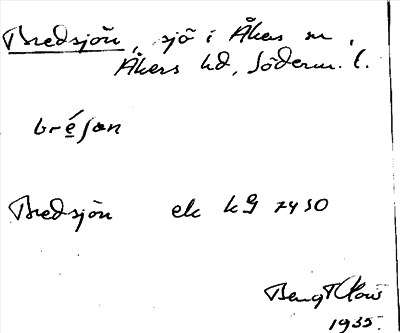 Bredsjön, sjö i Åkers sn,
Åkers hd, Söderm. l.
bréſɵn
Bredsjön ek kG 7430
Bengt
1935.